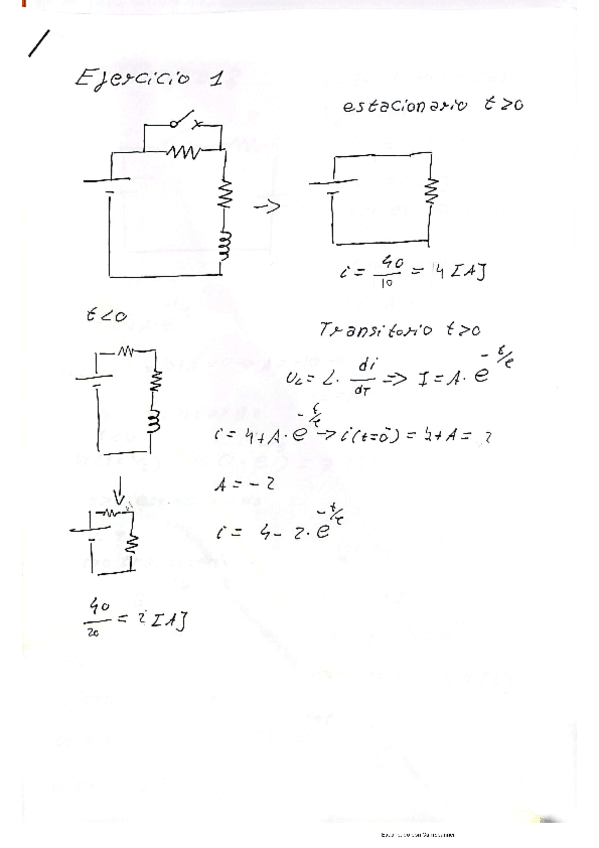 Ejercicio 1
estacionario t>0
i = 40/10 = 4 [A]
t<0
Transitorio t>0
UL = L · di/dT => I = A · e^(-t/τ)
i = 4 + A · e^(-t/τ) -> i(t=0) = 4 + A = 2
A = -2
i = 4 - 2 · e^(-t/τ)
40/20 = 2 [A]